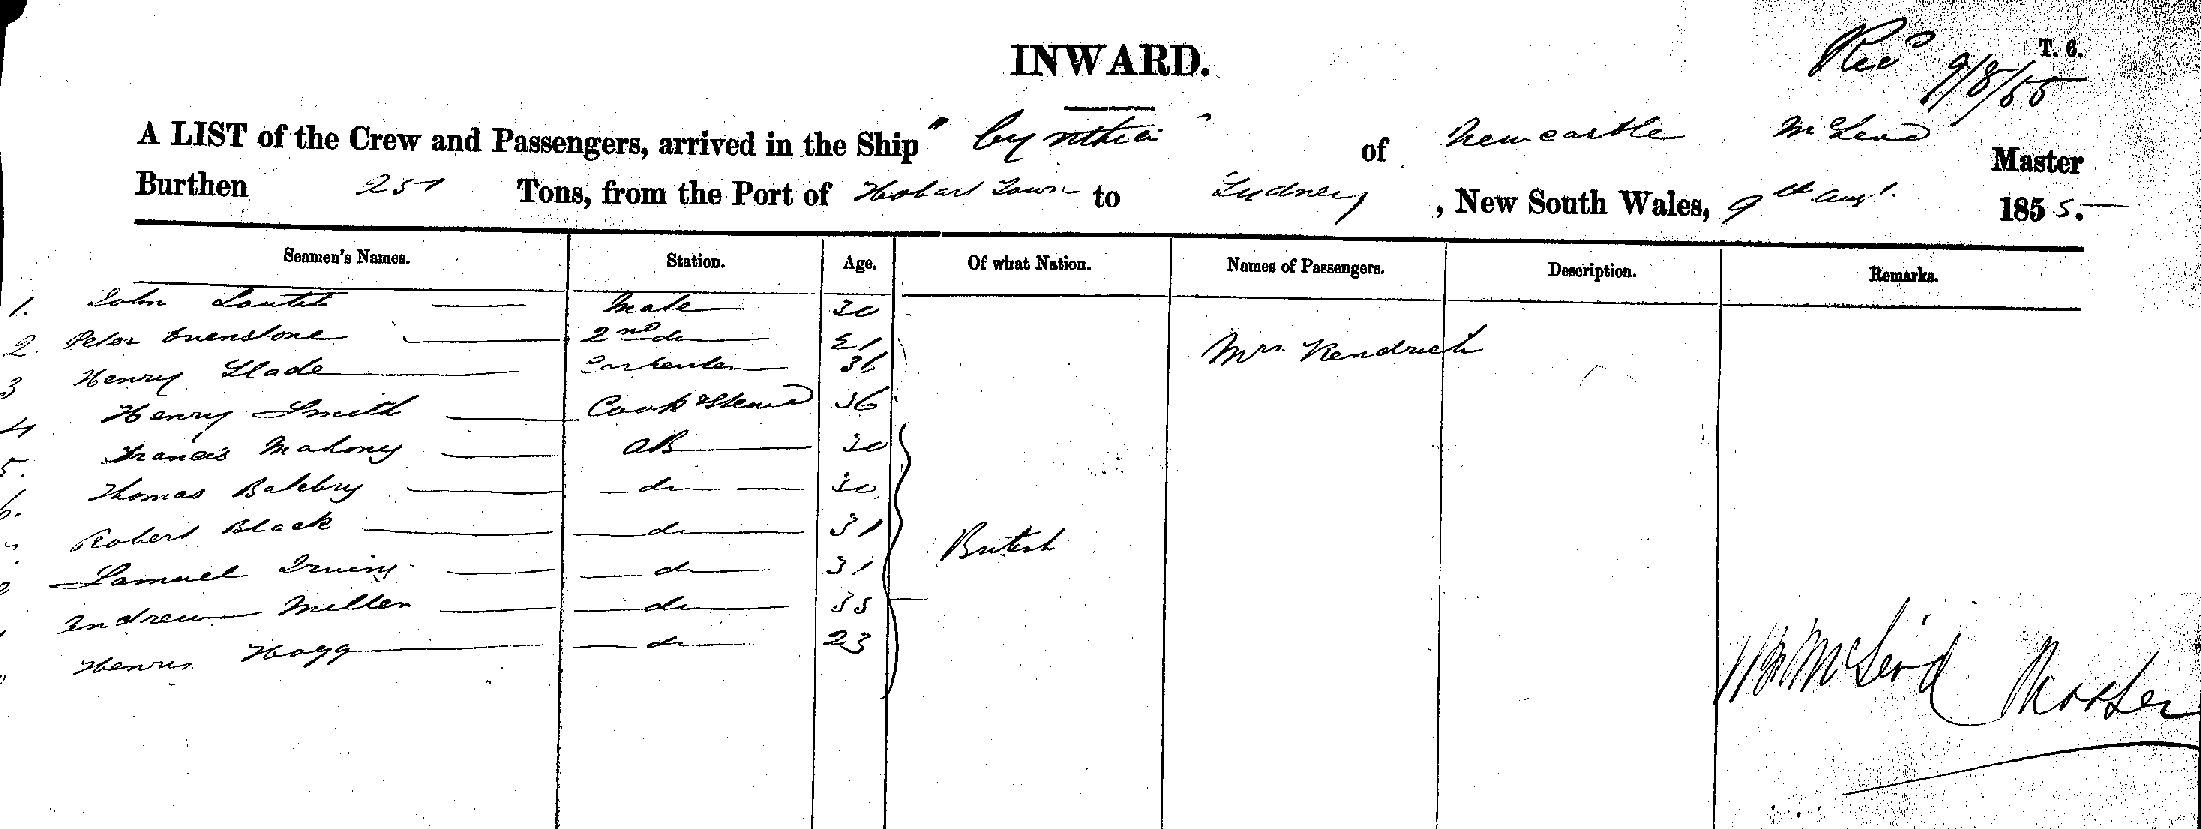 INWARD.
Recd T. 6.
9/8/55
A LIST of the Crew and Passengers, arrived in the Ship "Cynthia" of Newcastle McLeod Master
Burthen 251 Tons, from the Port of Hobart Town to Sydney, New South Wales, 9th Augt. 1855.
Seamen's Names. Station. Age. Of what Nation. Names of Passengers. Description. Remarks.
1. John Mate 30
2. Peter 2nd do 21
3 Henry Slade 36
4 Henry Smith Cook & Steward 36
5. Francis Mahoney AB 30
6. Thomas do 30
Robert Black do 31
Samuel Irving do 31
Andrew Miller do 35
Henry Hogg do 23
British
Mrs. Kendrick
Wm McLeod Master